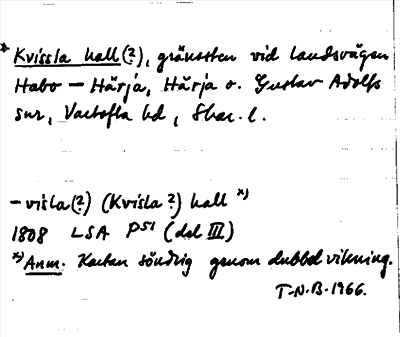 * Kvissla hall (?), gränssten vid landsvägen
Habo – Härja, Härja o. Gustav Adolfs
snr, Vartofta hd, Skar. l.
– visla (?) (Kvisla ?) hall *)
1808 LSA P51 (del III)
*) Anm. Kartan söndrig genom dubbel vikning.
T.N.B. 1966.